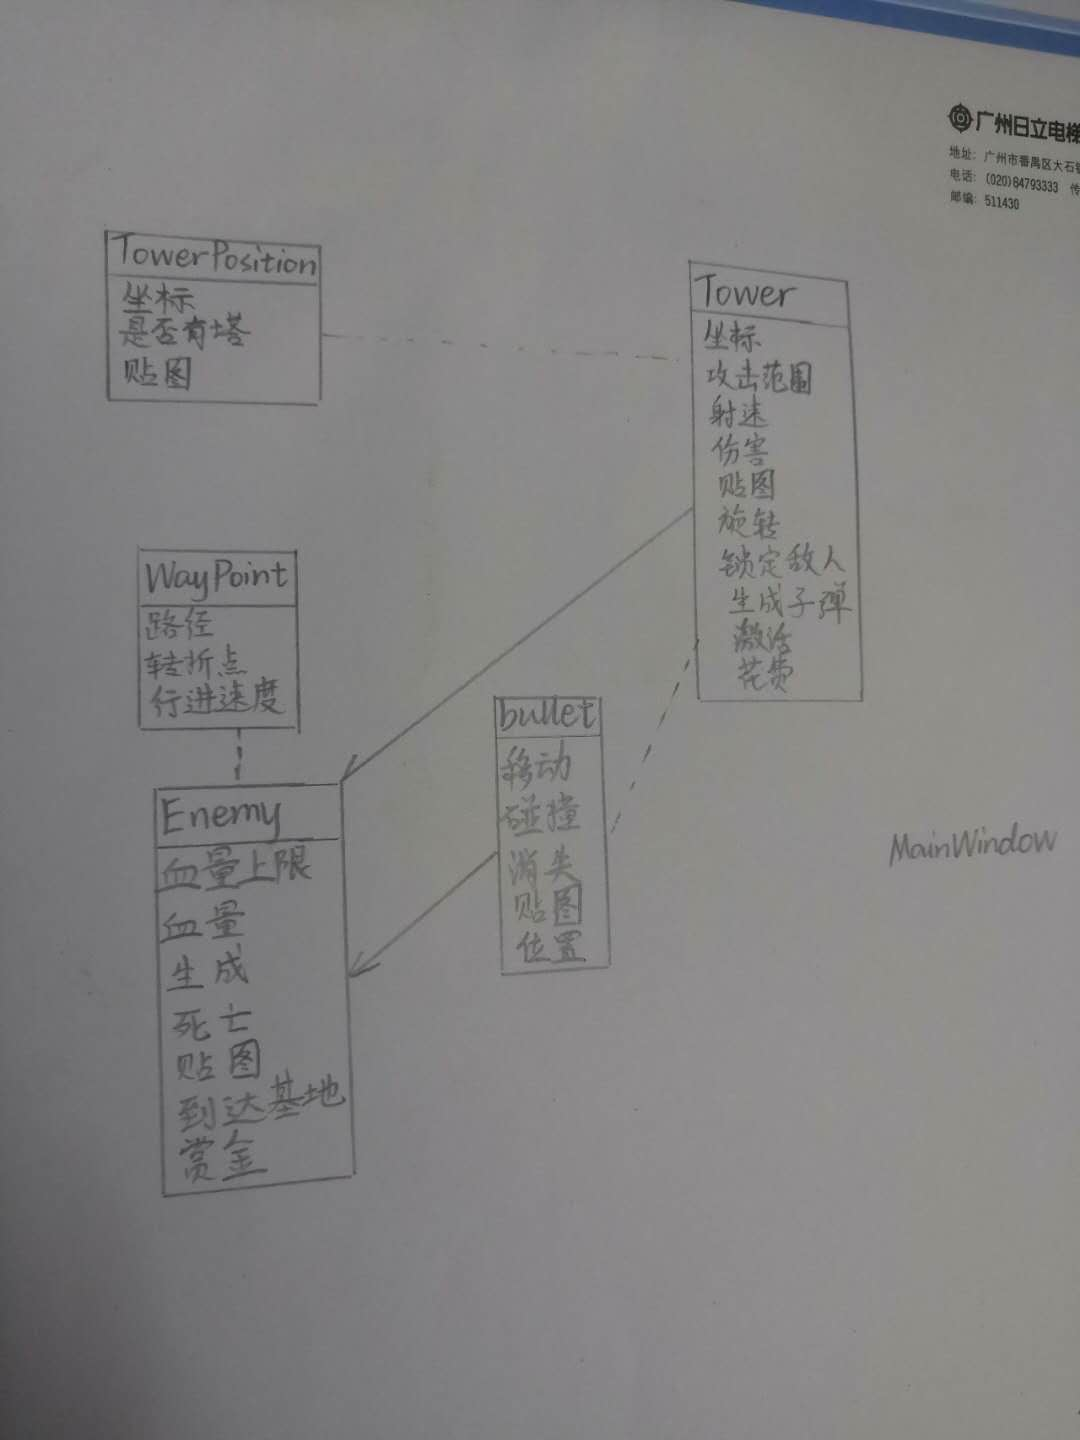 广州日立电梯
地址: 广州市番禺区大石
电话: (020)84793333 传
邮编: 511430
TowerPosition
坐标
是否有塔
贴图
Tower
坐标
攻击范围
射速
伤害
贴图
旋转
锁定敌人
生成子弹
激活
花费
WayPoint
路径
转折点
行进速度
bullet
移动
碰撞
消失
贴图
位置
Enemy
血量上限
血量
生成
死亡
贴图
到达基地
赏金
MainWindow